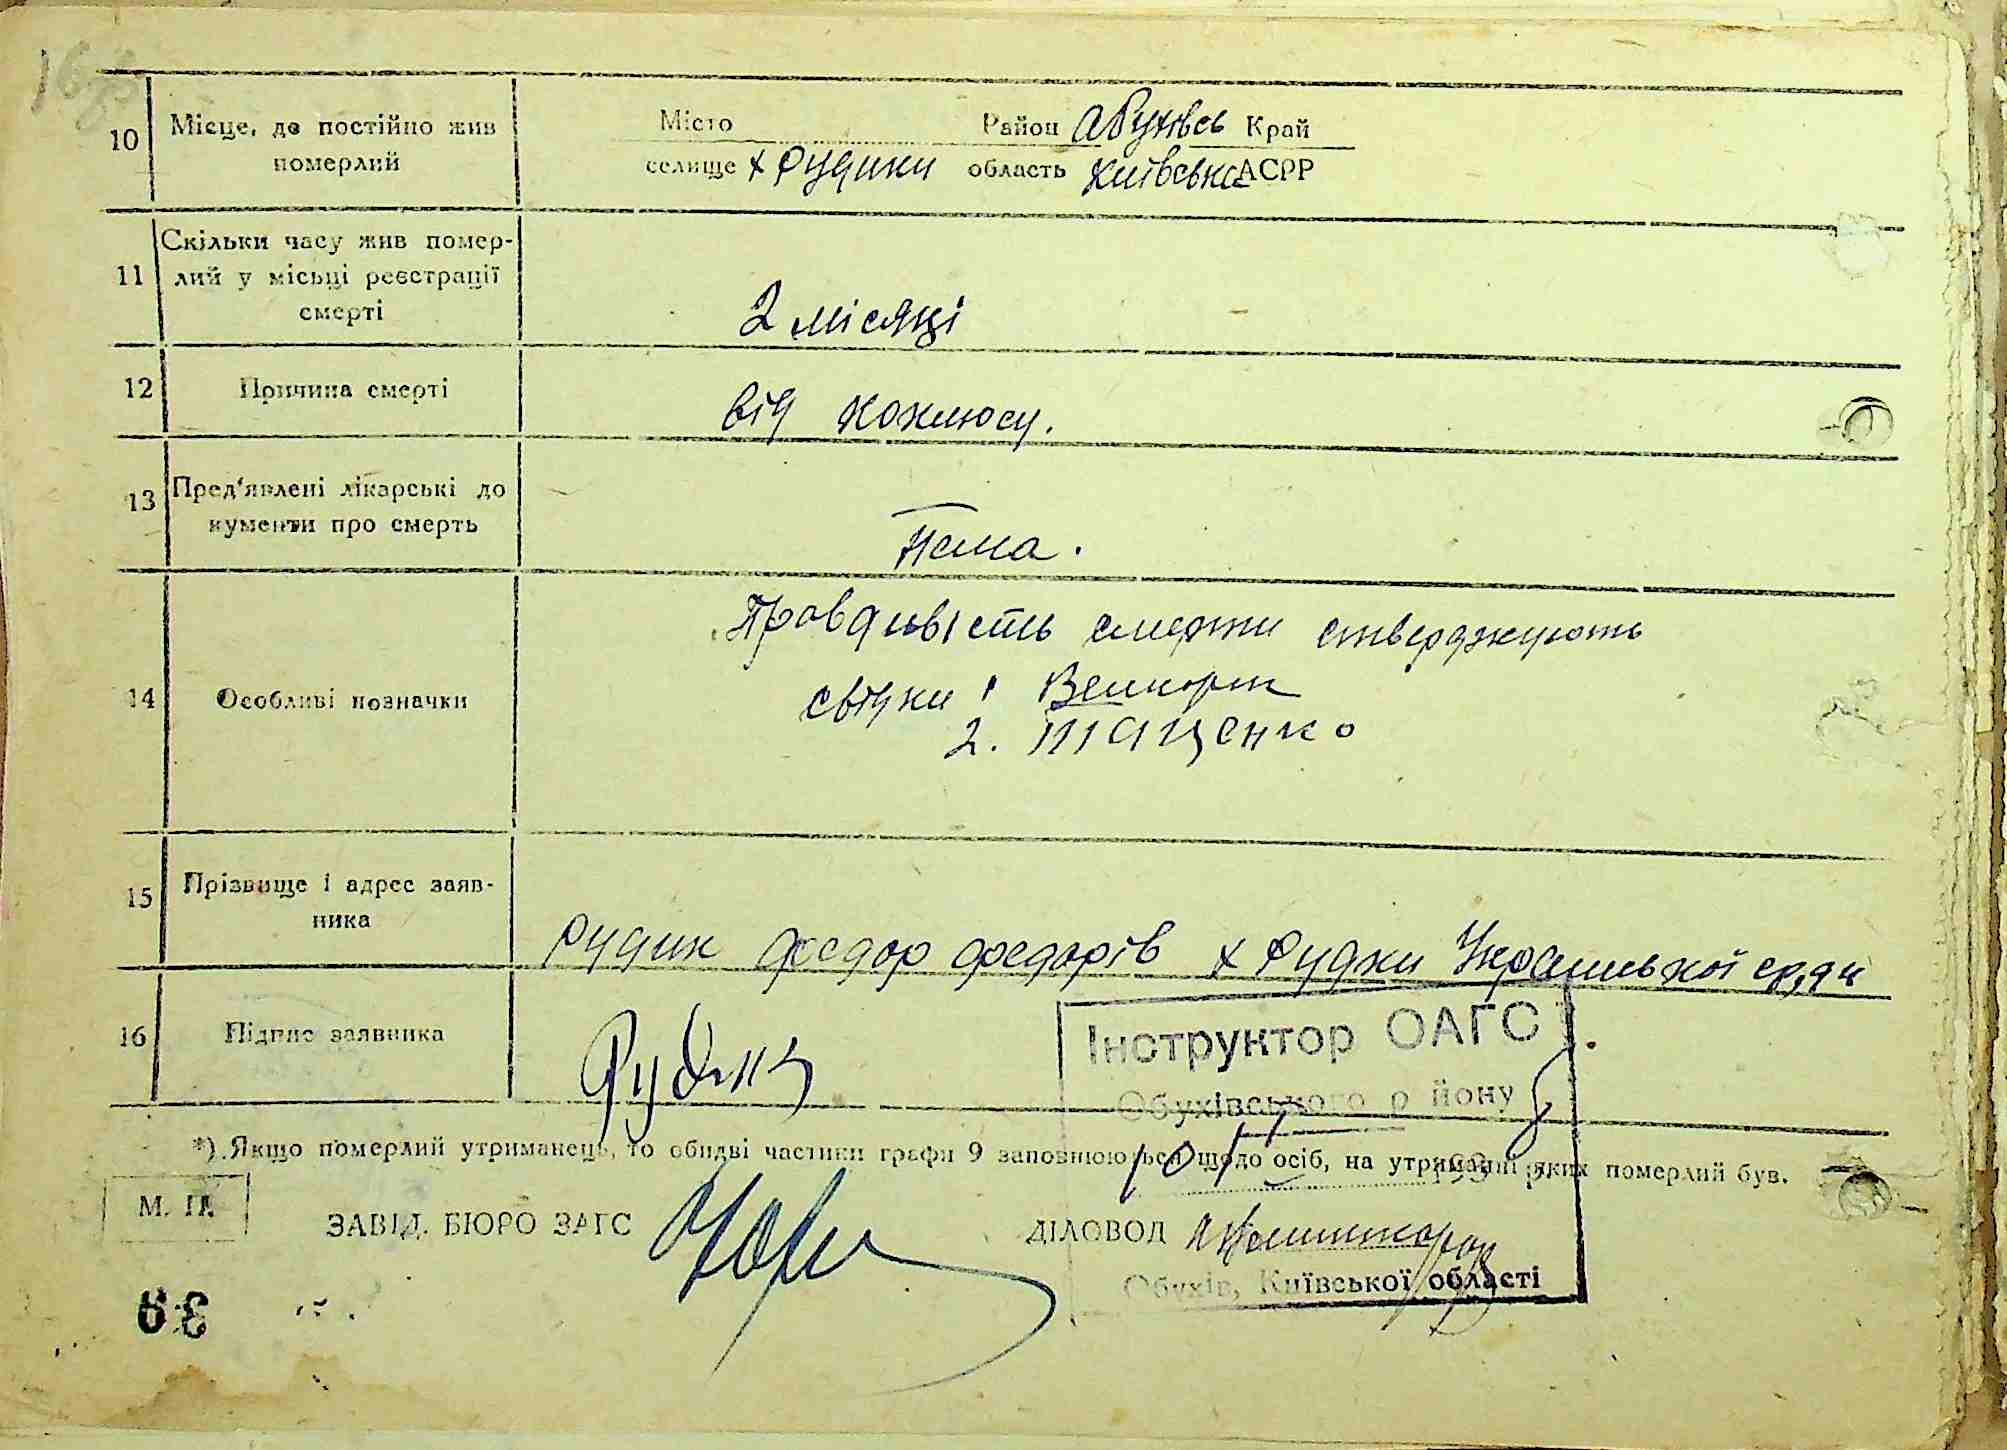 168
10 Місце, де постійно жив
померлий
Місто Район Абухівсь Край
селище х Рудики область Київська АСРР
11 Скільки часу жив помер-
лий у місьці реєстрації
смерті
2 місяці
12 Причина смерті
від коклюсу.
13 Пред'явлені лікарські до
кументи про смерть
Нема.
14 Особливі позначки
Правдивість смерти стверджують
свідки 1
2. ТТАЦЕНКО
15 Прізвище і адрес заяв-
ника
Рудик Федор Федорів х Рудки Української с/ради
16 Підпис заявника
Рудик
Інструктор ОАГС
Обухівського р йону
*). Якщо померлий утриманець, то обидві частини графи 9 заповнюються щодо осіб, на утриманні яких померлий був.
193
М. П.
ЗАВІД. БЮРО ЗАГС
ДІЛОВОД
Обухів, Київської області